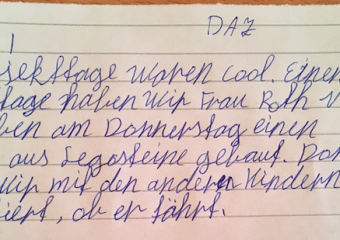 DAZ
jekttage waren cool. Einen
tage haben wir Frau Roth
ben am Donnerstag einen
aus Legosteine gebaut. Don
wir mit den anderen Kindern
iert, ob er fährt.